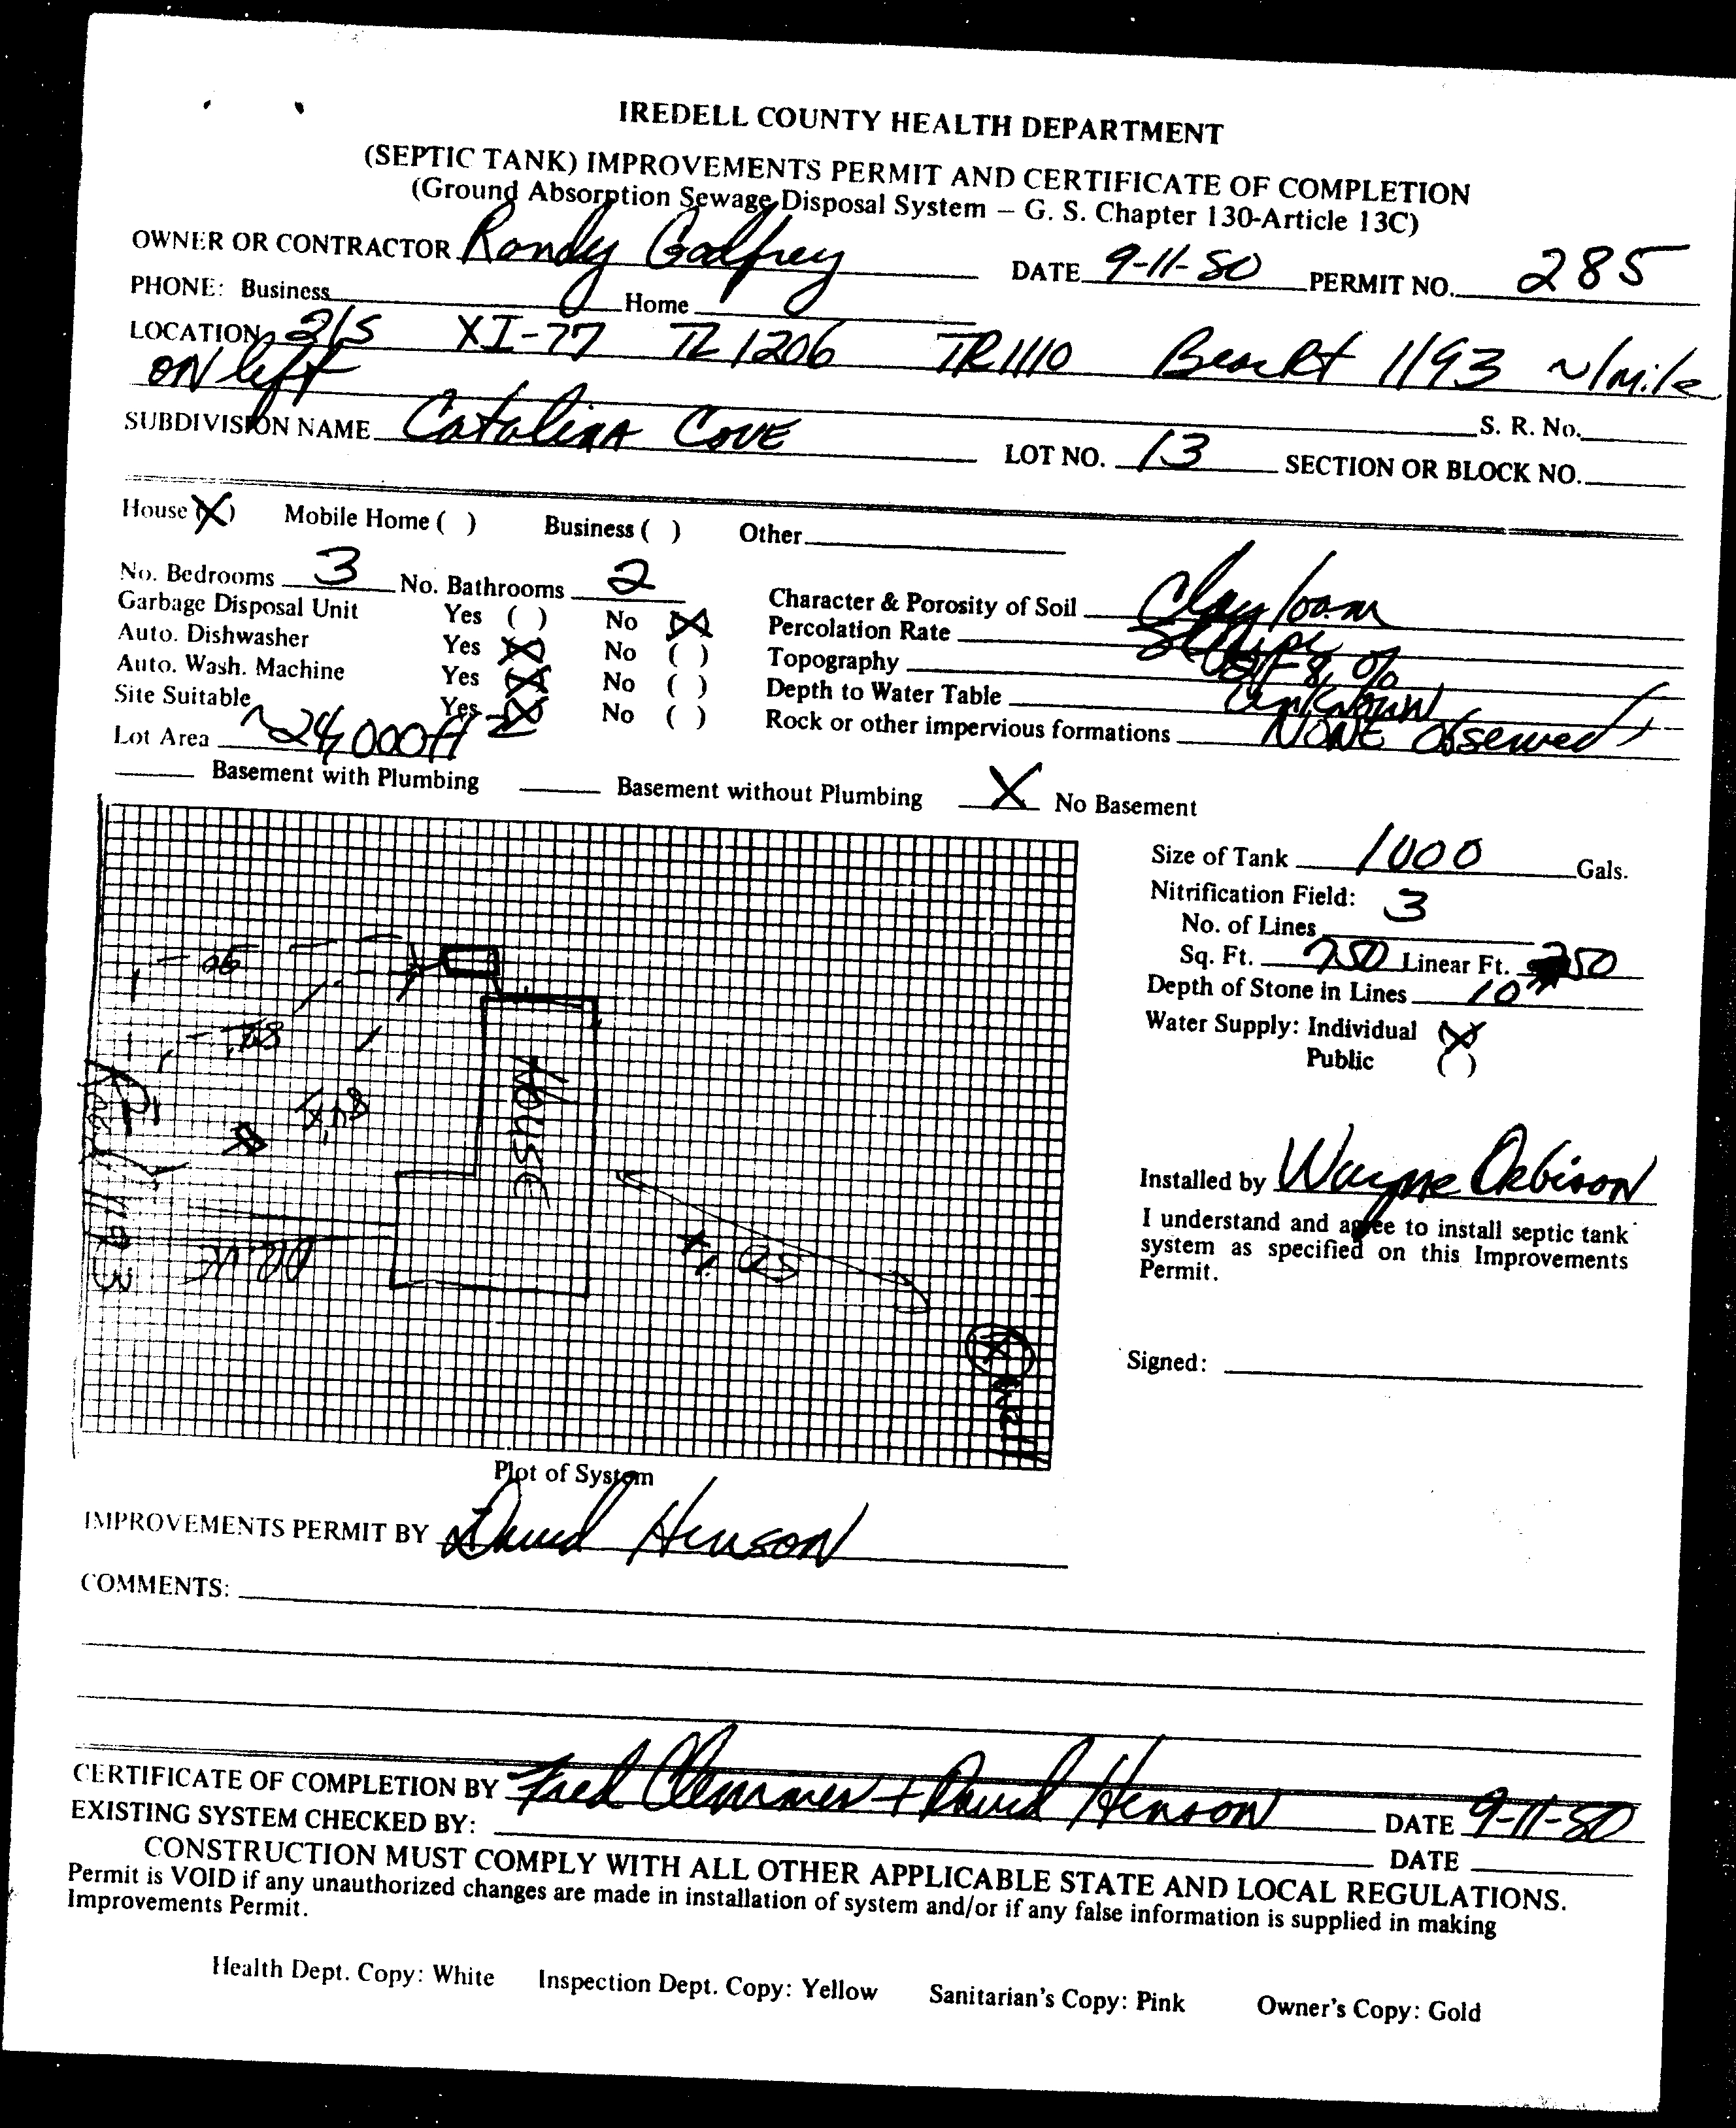 IREDELL COUNTY HEALTH DEPARTMENT
(SEPTIC TANK) IMPROVEMENTS PERMIT AND CERTIFICATE OF COMPLETION
(Ground Absorption Sewage Disposal System – G. S. Chapter 130-Article 13C)
OWNER OR CONTRACTOR Randy Godfrey DATE 9-11-80 PERMIT NO. 285
PHONE: Business Home
LOCATION 21S XI-77 TL 1206 TR1110 1193 ~1mile
ON left
SUBDIVISION NAME Catalina COVE S. R. No.
LOT NO. 13 SECTION OR BLOCK NO.
House (X) Mobile Home ( ) Business ( ) Other
No. Bedrooms 3 No. Bathrooms 2
Garbage Disposal Unit Yes ( ) No (X)
Auto. Dishwasher Yes (X) No ( )
Auto. Wash. Machine Yes (X) No ( )
Site Suitable Yes (X) No ( )
Lot Area ~24,000ft 2
Character & Porosity of Soil Clay loam
Percolation Rate
Topography Slope 8%
Depth to Water Table Unknown
Rock or other impervious formations NONE Observed
Basement with Plumbing Basement without Plumbing X No Basement
Size of Tank 1000 Gals.
Nitrification Field:
No. of Lines 3
Sq. Ft. 750 Linear Ft. 250
Depth of Stone in Lines 10"
Water Supply: Individual (X)
Public ( )
Installed by Wayne Orbison
I understand and agree to install septic tank
system as specified on this Improvements
Permit.
Signed:
House
Drive
Road 1193
Well
Plot of System
IMPROVEMENTS PERMIT BY David Henson
COMMENTS:
CERTIFICATE OF COMPLETION BY Fred Clemmer + David Henson DATE 9-11-80
EXISTING SYSTEM CHECKED BY: DATE
CONSTRUCTION MUST COMPLY WITH ALL OTHER APPLICABLE STATE AND LOCAL REGULATIONS.
Permit is VOID if any unauthorized changes are made in installation of system and/or if any false information is supplied in making
Improvements Permit.
Health Dept. Copy: White Inspection Dept. Copy: Yellow Sanitarian's Copy: Pink Owner's Copy: Gold